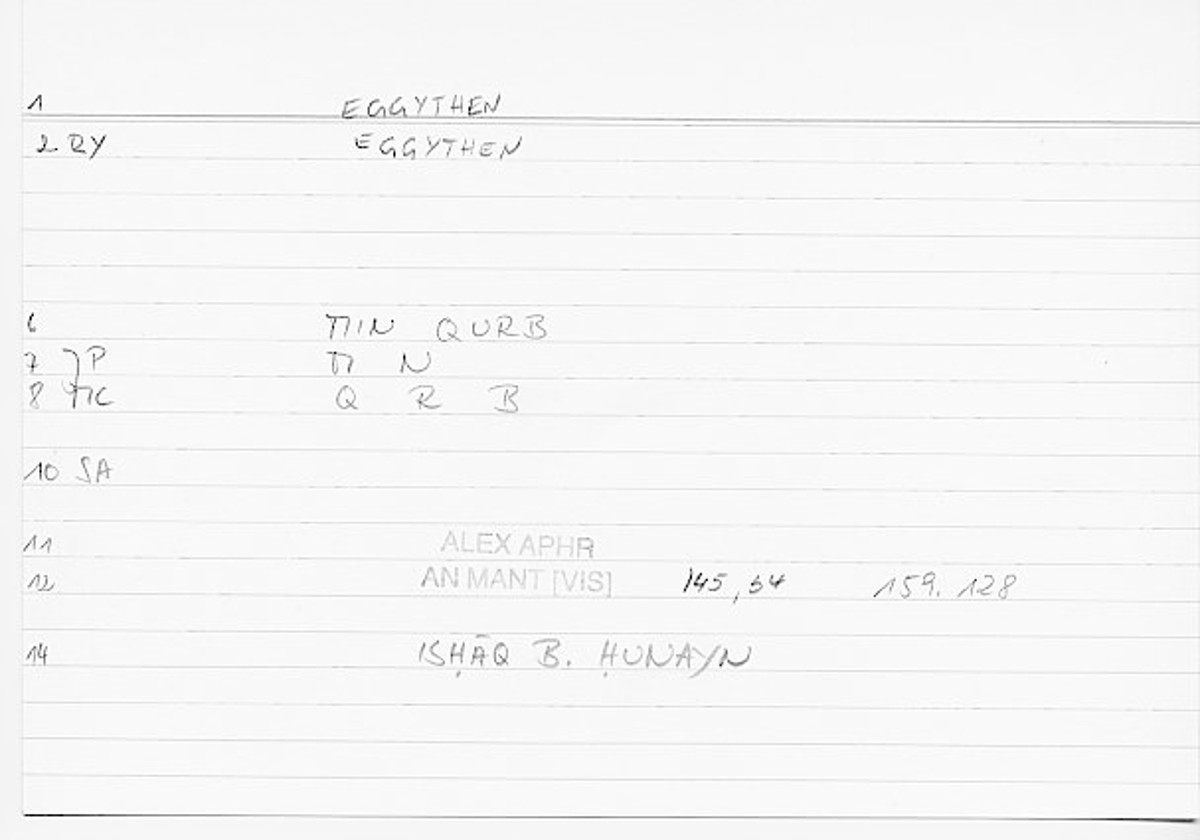 1 EGGYTHEN
2 RY EGGYTHEN
6 MIN QURB
7 JP M N
8 MC Q R B
10 SA
11 ALEX APHR
12 AN MANT [VIS] 145,54 159.128
14 ISḤĀQ B. ḤUNAYN